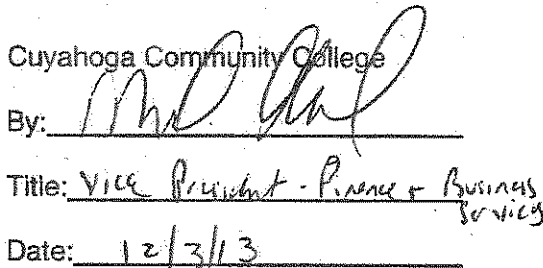 Cuyahoga Community College
By:
Title: Vice President - Finance + Business Services
Date: 12/3/13